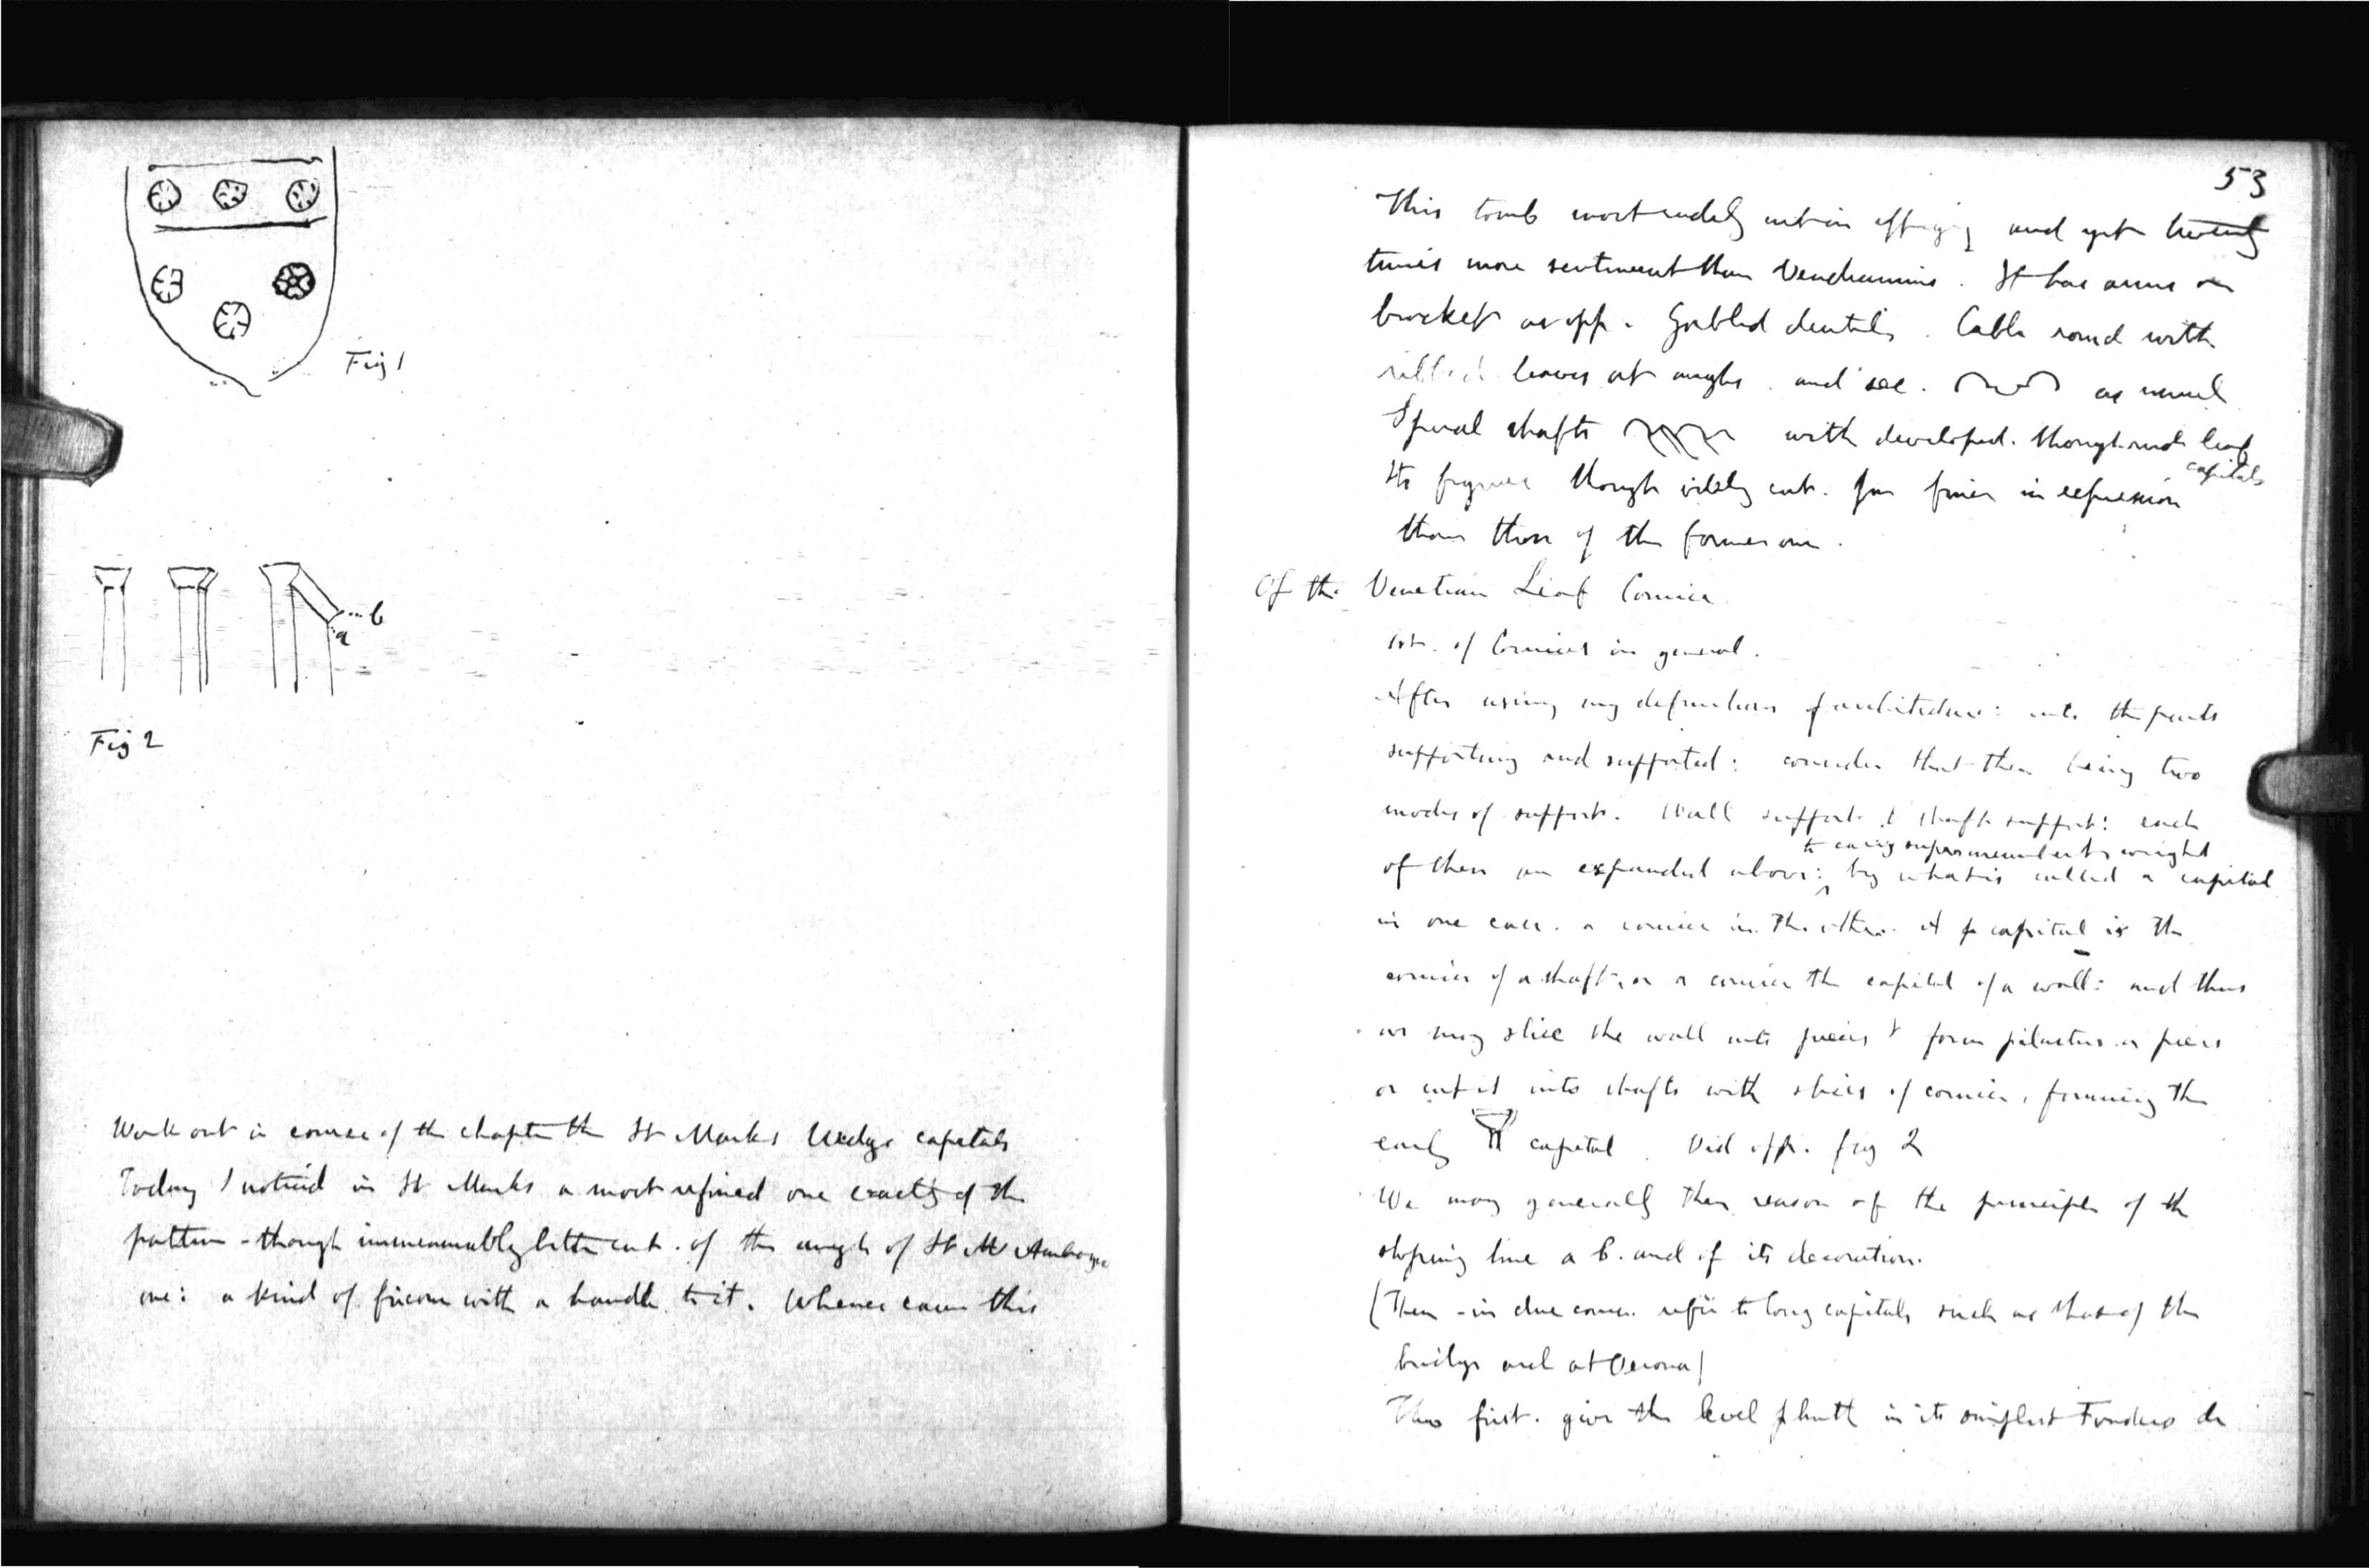 Fig 1
b
a
Fig 2
Work out in course of the chapter the St Marks Wedge capitals
Today I noticed in St Marks a most refined one exactly of the
pattern - though immeasurably better cut. of the angle of St M
one: a kind of with a handle to it. Whence came this
53
This tomb most rudely cut in effigy and yet twenty
times more sentiment than Vendramins. It has arms on
bracket as opp. Gabled dentils. Cable round with
ribbed leaves at angles. and sec. as usual
Spiral shafts with developed. though rude leaf
capitals
Its figures though vilely cut. far finer in expression
than those of the former one.
Of the Venetian Leaf Cornice
1st. of Cornices in general.
After using my definition of architecture: into the parts
supporting and supported: consider that there being two
modes of support. Wall support & shaft support: each
to carry superincumbent weight
of them are expanded above: by what is called a capital
in one case. a cornice in the other. A capital is the
cornice of a shaft, or a cornice the capital of a wall: and thus
we may slice the wall into pieces & form pilasters or piers
or cut it into shafts with slices of cornice, forming the
early capital. Vid opp. fig 2
We may generally then reason of the principle of the
sloping line a b. and of its decoration.
(Then - in due course. refer to long capitals such as that of the
bridge arch at Verona)
Thus first. give the level plinth in its simplest Fondaco de